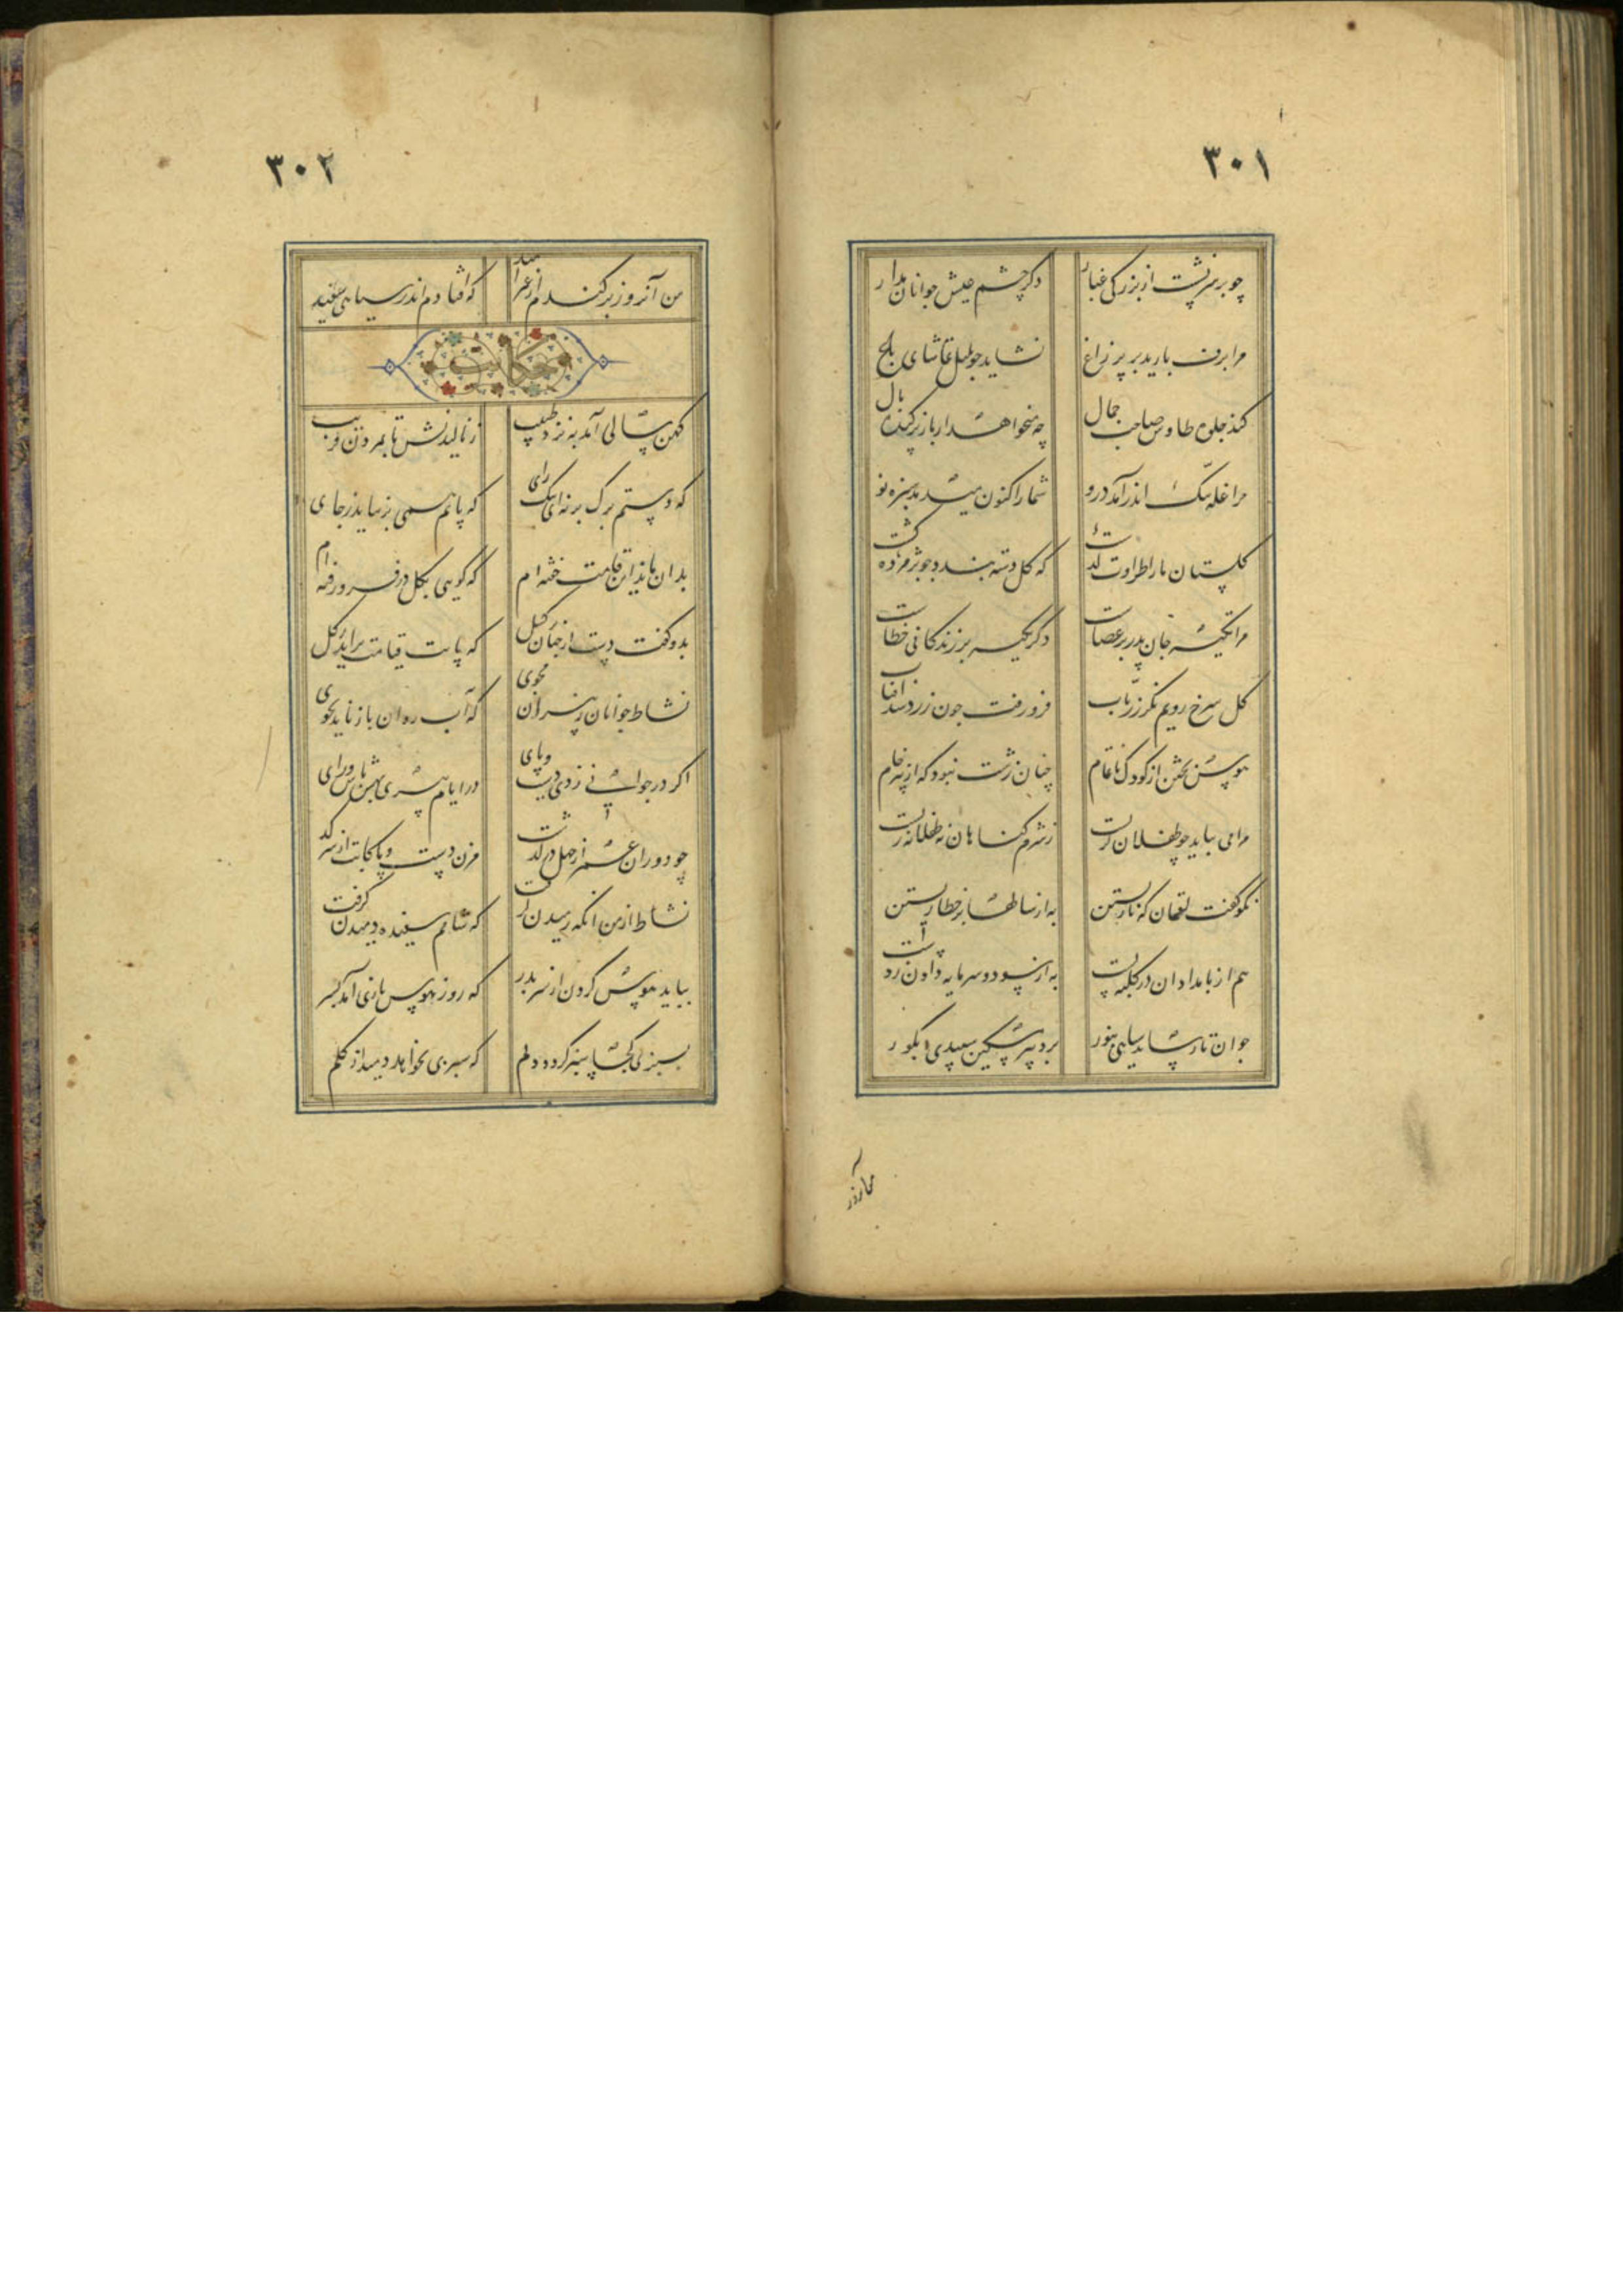 ۳۰۱
چو بر سر نشست از بزرگی غبار دگر چشم عیش جوانان مدار
مرا برف بارید بر پر زاغ نشاید چو بلبل تماشای باغ
کند جلوه طاوس صاحب جمال چه میخواهد از باز برکنده بال
مرا غله تنک اندر آمد درو شما را کنون میدمد سبزه نو
کلستان ما را طراوت کذشت که کل دسته بندد چو پژمرده کشت
مرا تکیه جان پدر بر عصاست دکر تکیه بر زندکانی خطاست
کل سرخ رویم نکر زر ناب فرو رفت چون زرد شد آفتاب
هوس پختن از کودک ناتمام چنان زشت نبود که از پیر خام
مرا می بباید چو طفلان کریست ز شرم کناهان نه طفلانه زیست
نکو کفت لقمان که نازیستن به از سالها بر خطا زیستن
هم از بامدادان در کلبه بست به از سود و سرمایه دادن ز دست
جوان تا رساند سیاهی بنور برد پیر مسکین سپیدی بکور
۳۰۲
من آنروز برکندم از عمر امید که افتادم اندر سیاهی سفید
حکایت
کهن سالی آمد به نزد طبیب ز نالیدنش تا بمردن قریب
که دستم برک برنه ای نیک رای که پایم همی برنیاید ز جای
بدان ماند این قامت خفته ام که کویی بکل در فرو رفته ام
بدو کفت دست از جهان کسل که پایت قیامت براید ز کل
نشاط جوانان ز پیران مجوی که آب روان باز ناید بجوی
اکر در جوانی زدی دست و پای در ایام پیری بهش باش و رای
چو دوران عمر از چهل در کذشت مزن دست و پا کابت از سر کذشت
نشاط از من آنکه رمیدن کرفت که شامم سپیده دمیدن کرفت
بباید هوس کردن از سر بدر که روز هوس بازی آمد بسر
بسبزی کجا سبز کردد دلم که سبزی بخواهد دمید از کلم